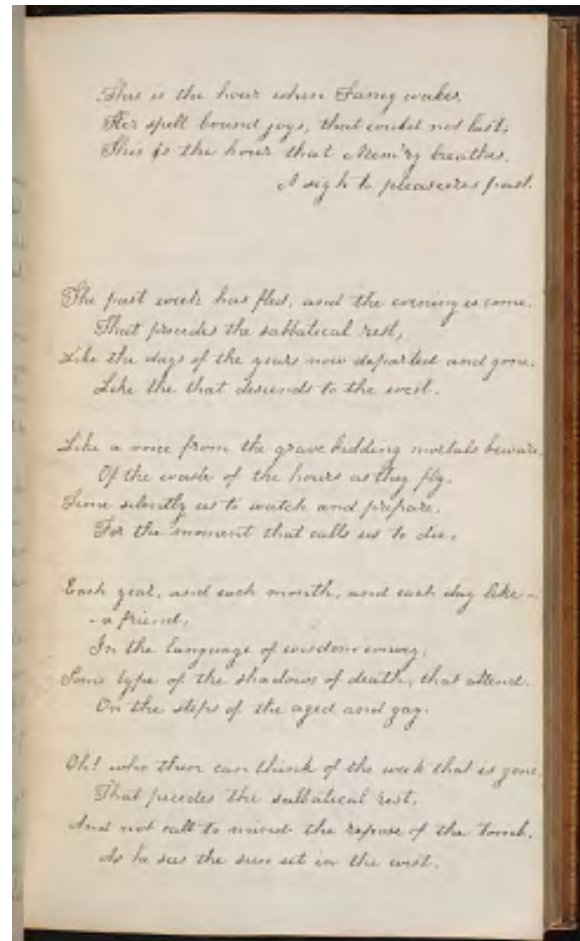 This is the hour when Fancy wakes,
Her spell bound joys, that could not last;
This is the hour that Mem'ry breathes,
A sigh to pleasures past.
The past week has fled, and the evening is come.
That precedes the sabbatical rest,
Like the days of the years now departed and gone,
Like the that descends to the west.
Like a voice from the grave bidding mortals beware,
Of the waste of the hours as they fly.
Time silently us to watch and prepare,
For the moment that calls us to die.
Each year, and each month, and each day like -
- a friend,
In the language of wisdom convey,
Some type of the shadows of death, that attend.
On the steps of the aged and gay.
Oh! who then can think of the week that is gone,
That precedes the sabbatical rest,
And not call to mind the repose of the tomb,
As he sees the sun set in the west.